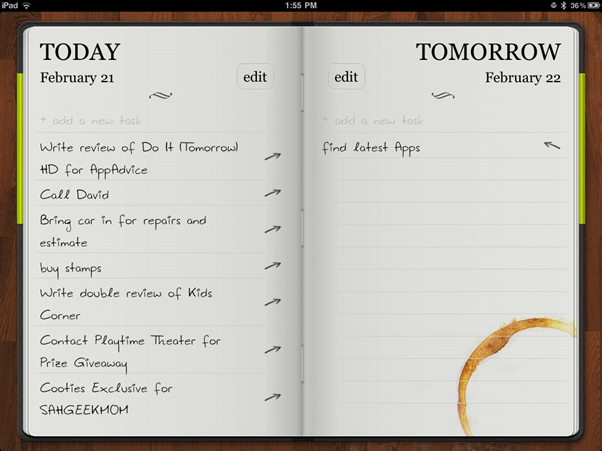 iPad
1:55 PM
36%
TODAY
February 21
edit
+ add a new task
Write review of Do It (Tomorrow)
HD for AppAdvice
Call David
Bring car in for repairs and
estimate
buy stamps
Write double review of Kids
Corner
Contact Playtime Theater for
Prize Giveaway
Cooties Exclusive for
SAHGEEKMOM
TOMORROW
edit
February 22
+ add a new task
find latest Apps